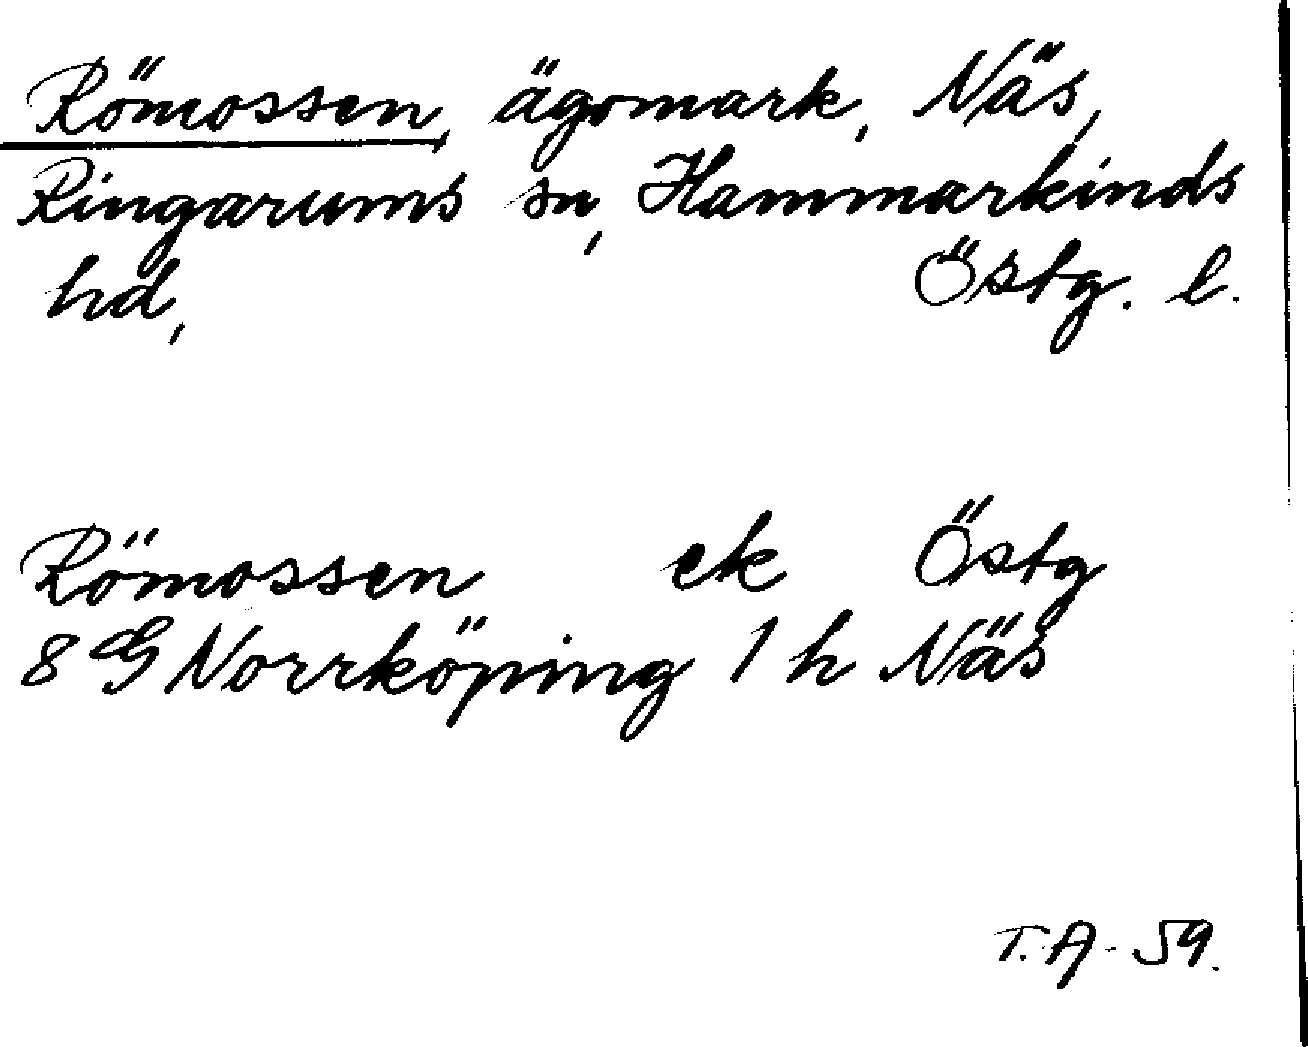 Römossen, ägomark, Näs,
Ringarums sn, Hammarkinds
hd, Östg. l.
Römossen ek Östg
8 G Norrköping 1 h Näs
T.A. 59.